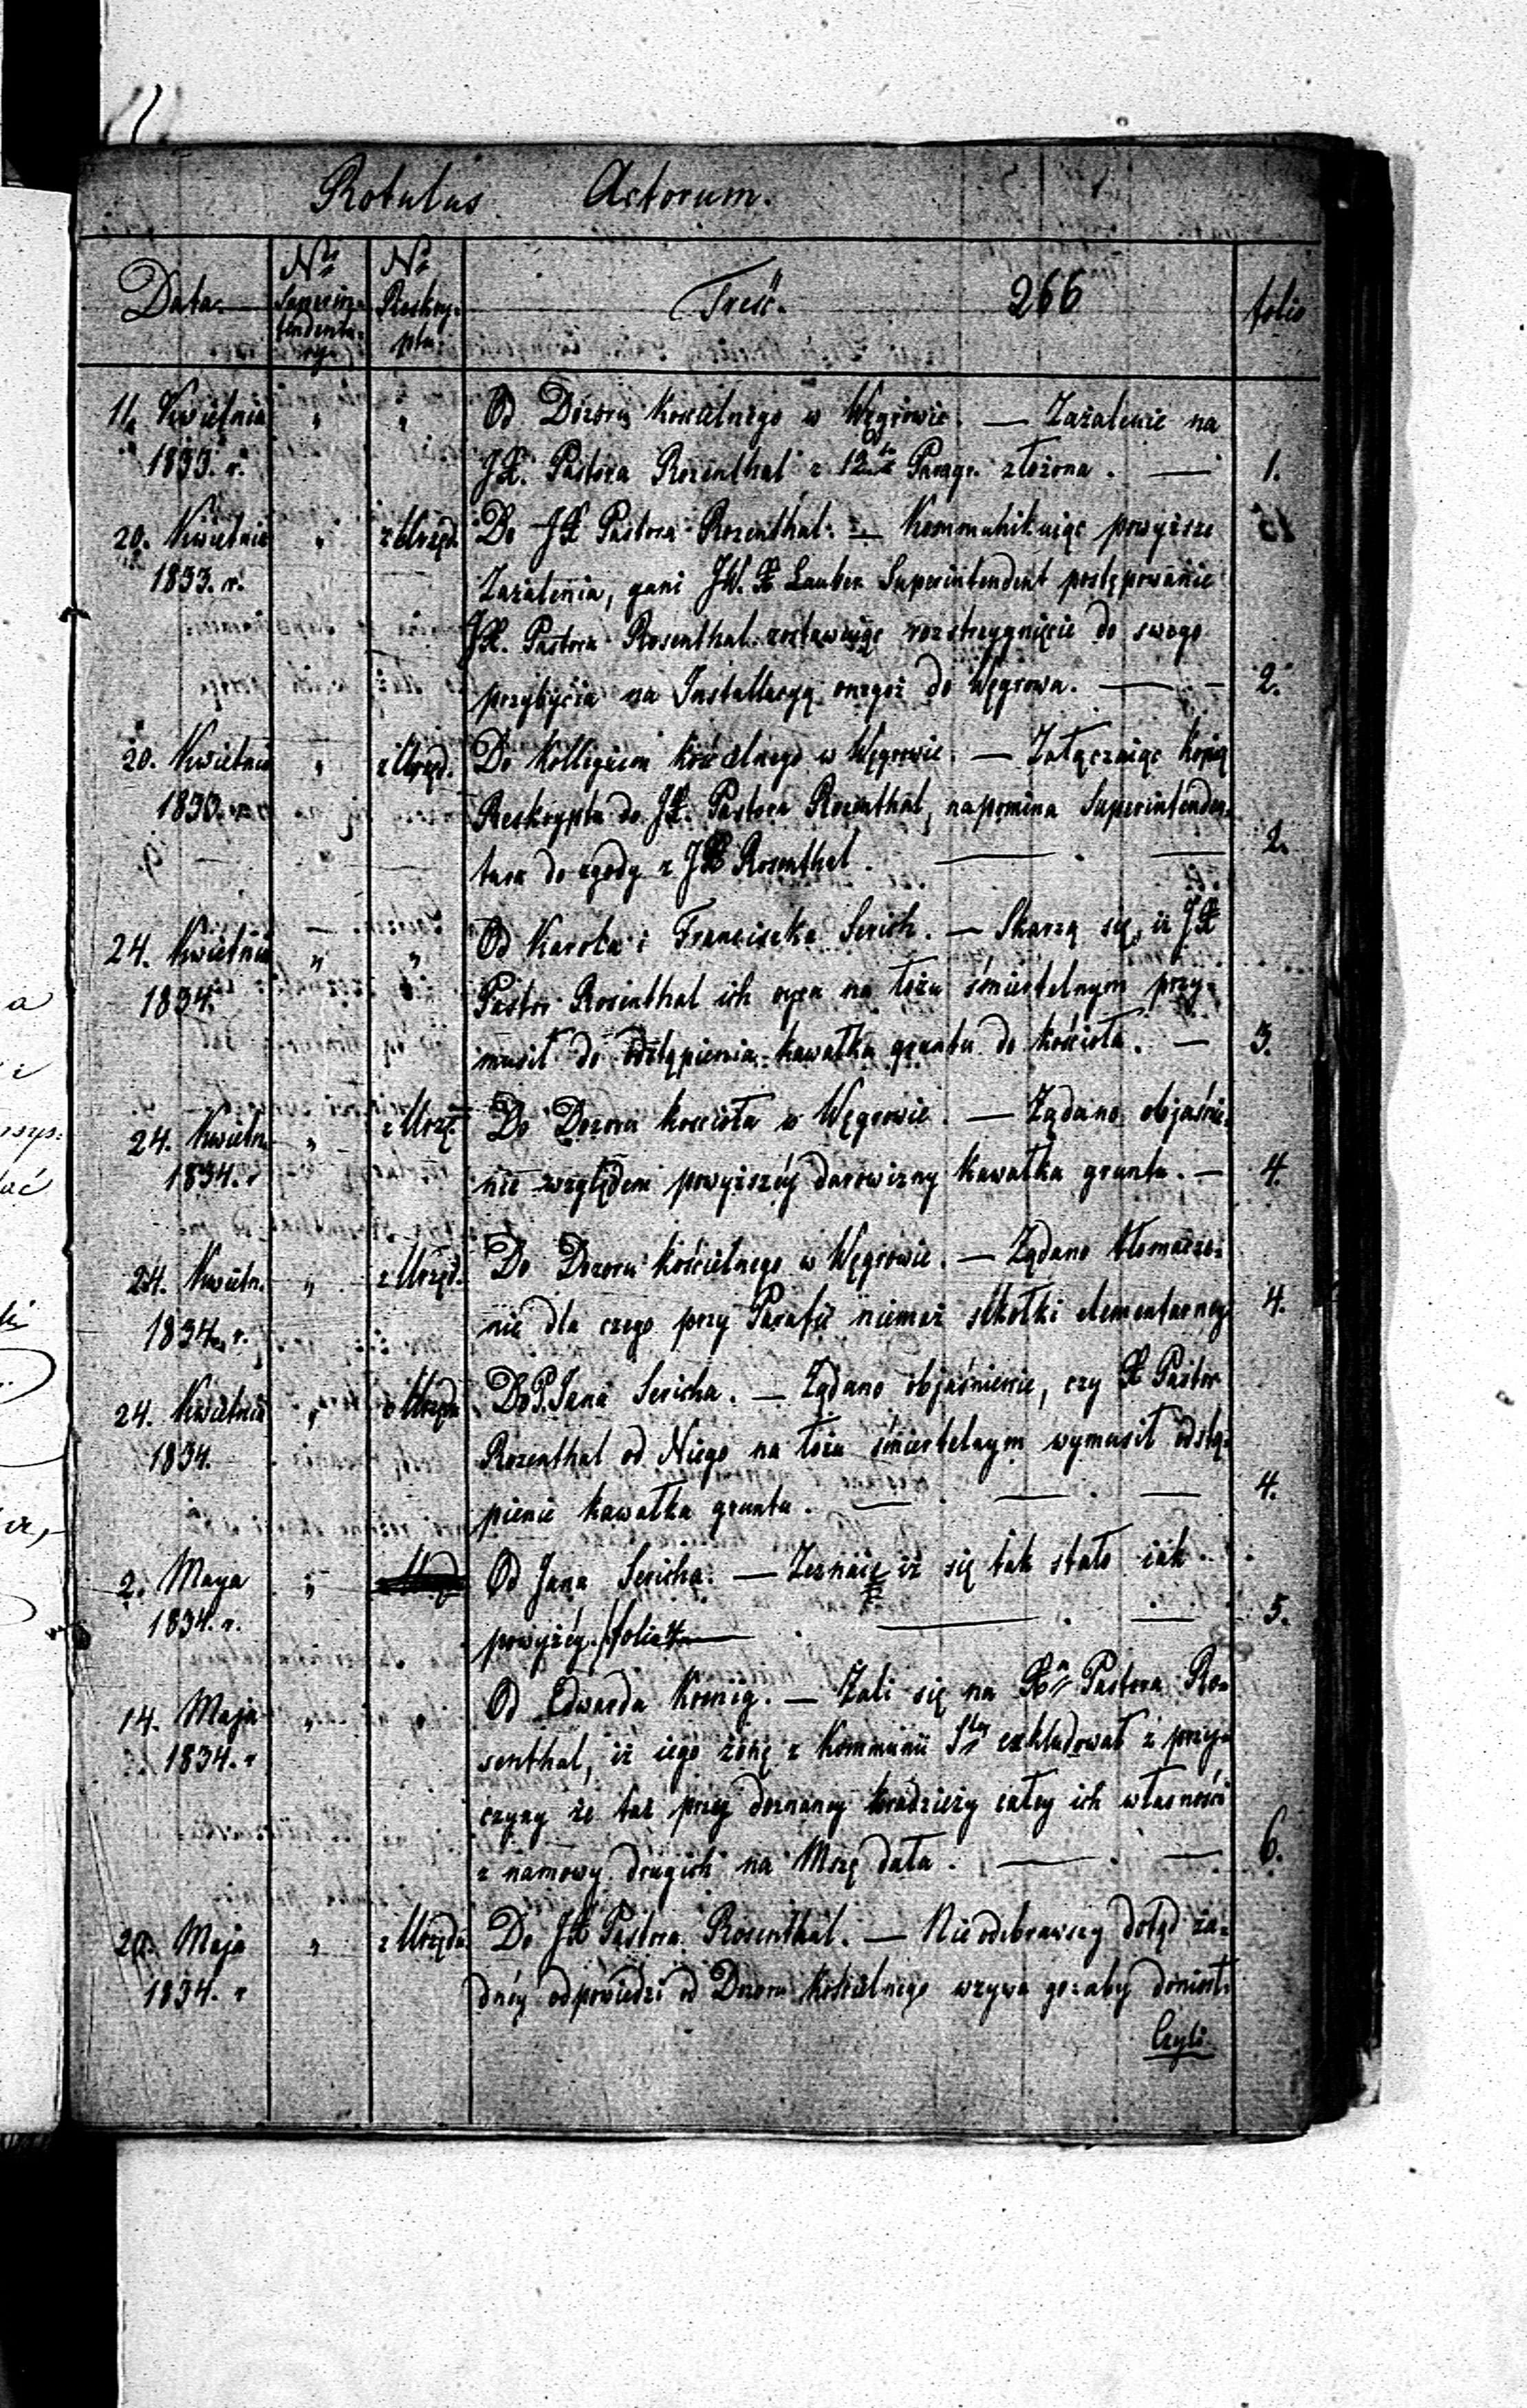 Rotulus Actorum.
Data. Nus Superintendentury Nus Reskryptu. Treść. 266 folio
11. Kwietnia " " Od Dozoru Kościelnego w Węgrowie. — Zażalenie na
1833. r. JX. Pastora Rozenthal z 12tu Paragr. złożona. — 1.
20. Kwietnia " z Urzęd. Do JX Pastora Rozenthal. — Kommunikuiąc powyższe
1833. r. Zażalenia, gani JW. X Lauber Superintendent postępowanie
JX. Pastora Rosenthal zostawuiąc rozstrzygnięcie do swego
przybycia na Installacyą onegoż do Węgrowa. — 2.
20. Kwietnia " z Urzęd. Do Kollegium Kościelnego w Węgrowie. — Załączaiąc kopią
1833. Reskryptu do JX. Pastora Rozenthal, napomina Superintenden-
tura do zgody z JX Rosenthal. — 2.
24. Kwietnia " " Od Karola i Franciszka Serich. — Skarżą się, iż JX
1834. Pastor Rosenthal ich oyca na łożu śmiertelnym przy-
musił do odstąpienia kawałka gruntu do kościoła. — 3.
24. Kwietn. " z Urzę. Do Dozoru kościoła w Węgrowie. — Żądano objaśnie-
1834. r nie względem powyższéy darowizny kawałka gruntu. — 4.
24. Kwietn. " z Urzęd. Do Dozoru kościelnego w Węgrowie. — Żądano tłomacze-
1834. r. nie dla czego przy Parafii niemasz szkołki elementarney 4.
24. Kwietnia " z Urzędu Do P. Jana Sericha. — Żądano objaśnienie, czy X Pastor
1834. Rozenthal od Niego na łożu śmiertelnym wymusił odstą-
pienie kawałka gruntu. — 4.
2. Maya " Od Jana Sericha. — Zeznaie iż się tak stało iak
1834. r. powyżéy folio 4 — 5.
14. Maja " " Od Edwarda Koenig. — Żali się na Xa Pastora Ro-
1834. r senthal, iż iego żonę z Kommunii Stey exkludował z przy-
czyny że taż przy doznaney kradzieży całey ich własności
z namowy drugich na Mszę dała. — 6.
20. Maja " z Urzędu Do JX Pastora Rosenthal. — Nie odebrawszy dotąd ża-
1834. r dnéy odpowiedzi od Dozoru Kościelnego wzywa go aby doniosł.
Czyli